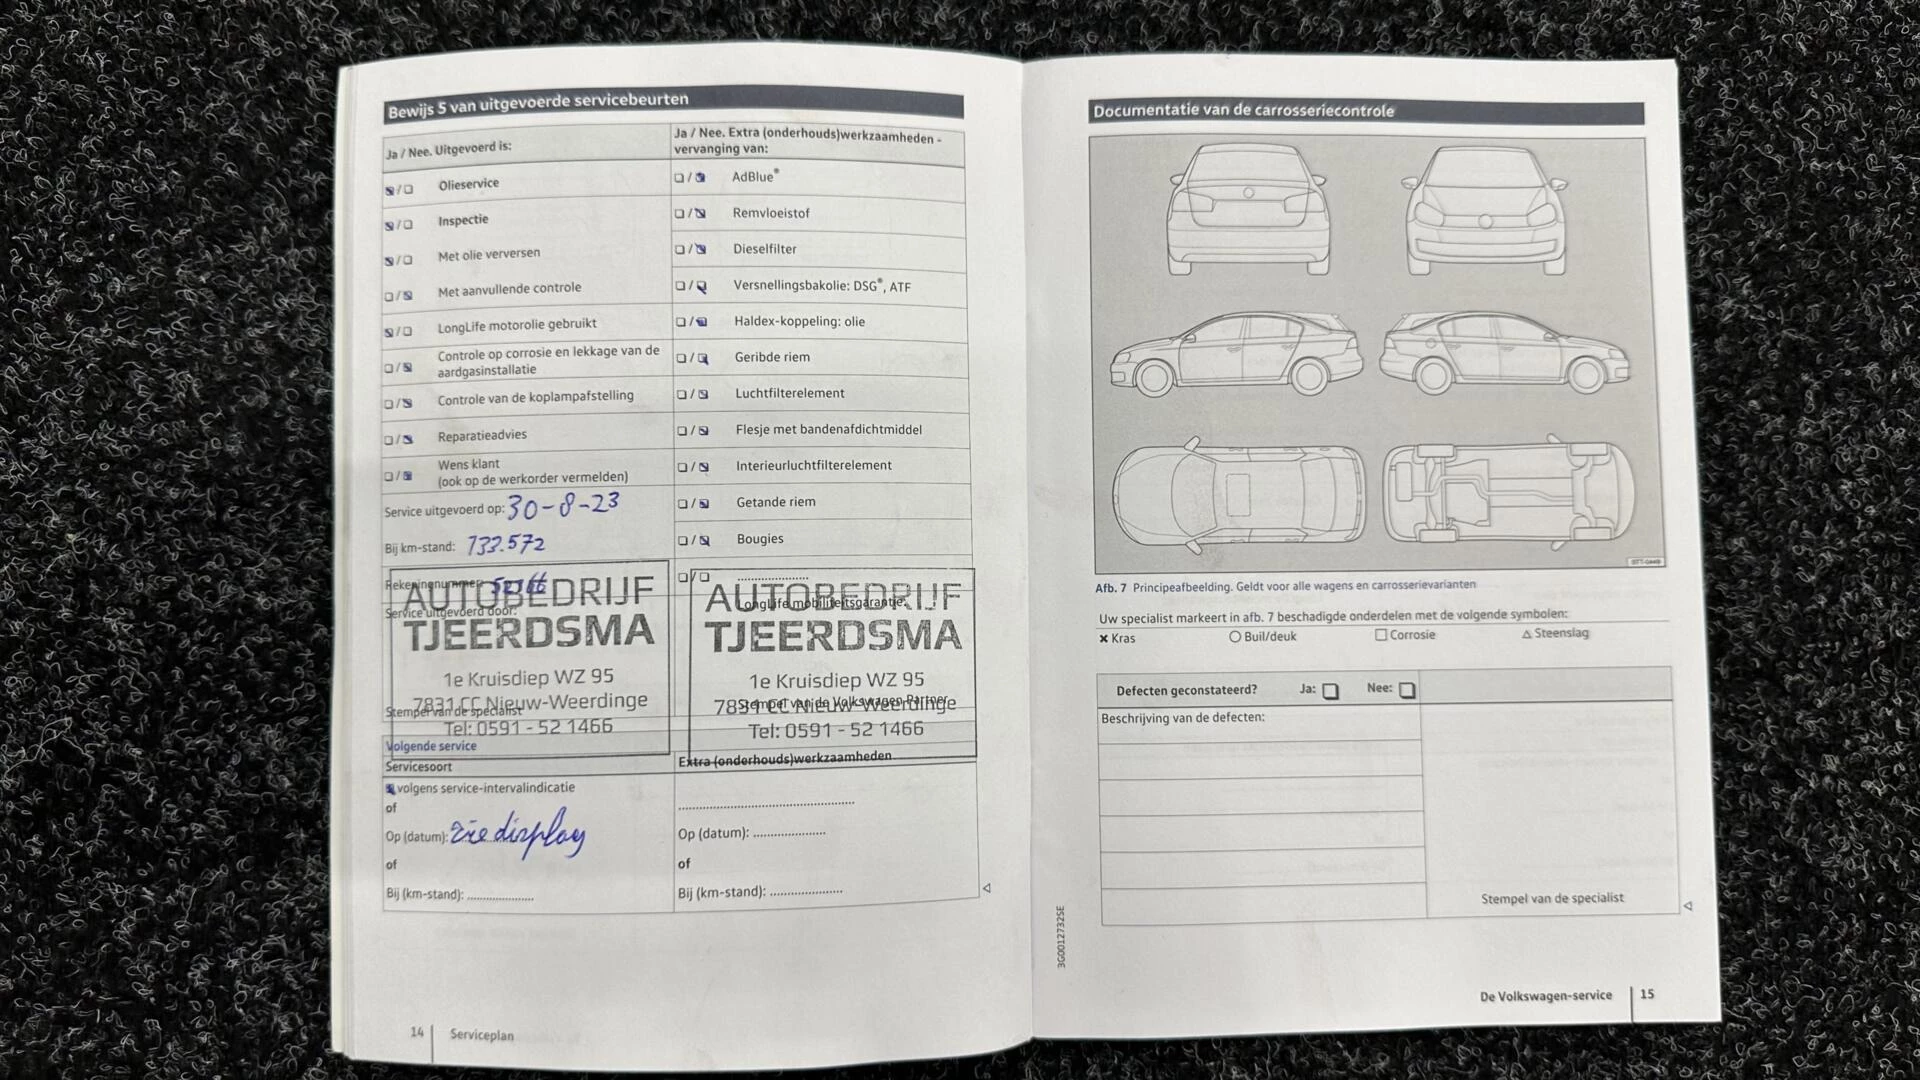 Bewijs 5 van uitgevoerde servicebeurten
Ja / Nee. Uitgevoerd is:
Olieservice
Inspectie
Met olie verversen
Met aanvullende controle
LongLife motorolie gebruikt
Controle op corrosie en lekkage van de
aardgasinstallatie
Controle van de koplampafstelling
Reparatieadvies
Wens klant
(ook op de werkorder vermelden)
Service uitgevoerd op: 30-8-23
Bij km-stand: 133.572
Rekeningnummer:
Service uitgevoerd door:
AUTOBEDRIJF
TJEERDSMA
1e Kruisdiep WZ 95
7831 CC Nieuw-Weerdinge
Stempel van de specialist
Tel: 0591 - 52 1466
Ja / Nee. Extra (onderhouds)werkzaamheden -
vervanging van:
AdBlue®
Remvloeistof
Dieselfilter
Versnellingsbakolie: DSG®, ATF
Haldex-koppeling: olie
Geribde riem
Luchtfilterelement
Flesje met bandenafdichtmiddel
Interieurluchtfilterelement
Getande riem
Bougies
....................
AUTOBEDRIJF
LongLife mobiliteitsgarantie:
TJEERDSMA
1e Kruisdiep WZ 95
7831 CC Nieuw-Weerdinge
Stempel van de Volkswagen Partner
Tel: 0591 - 52 1466
Volgende service
Servicesoort
volgens service-intervalindicatie
of
Op (datum): zie display
of
Bij (km-stand): ...................
Extra (onderhouds)werkzaamheden
..................................................
Op (datum): ....................
of
Bij (km-stand): ....................
14 Serviceplan
Documentatie van de carrosseriecontrole
Afb. 7 Principeafbeelding. Geldt voor alle wagens en carrosserievarianten
Uw specialist markeert in afb. 7 beschadigde onderdelen met de volgende symbolen:
Kras Buil/deuk Corrosie Steenslag
Defecten geconstateerd? Ja: Nee:
Beschrijving van de defecten:
Stempel van de specialist
3G0012732SE
De Volkswagen-service 15